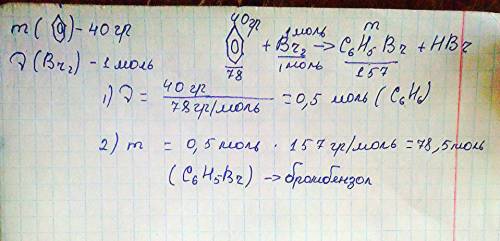 m(⌬) - 40 гр
ν(Br₂) - 1 моль
40гр 1 моль m
⌬ + Br₂ → C₆H₅Br + HBr
78 1 моль 157
1) ν = 40 гр / 78 гр/моль = 0,5 моль (C₆H₆)
2) m = 0,5 моль · 157 гр/моль = 78,5 моль
(C₆H₅Br) → бромбензол